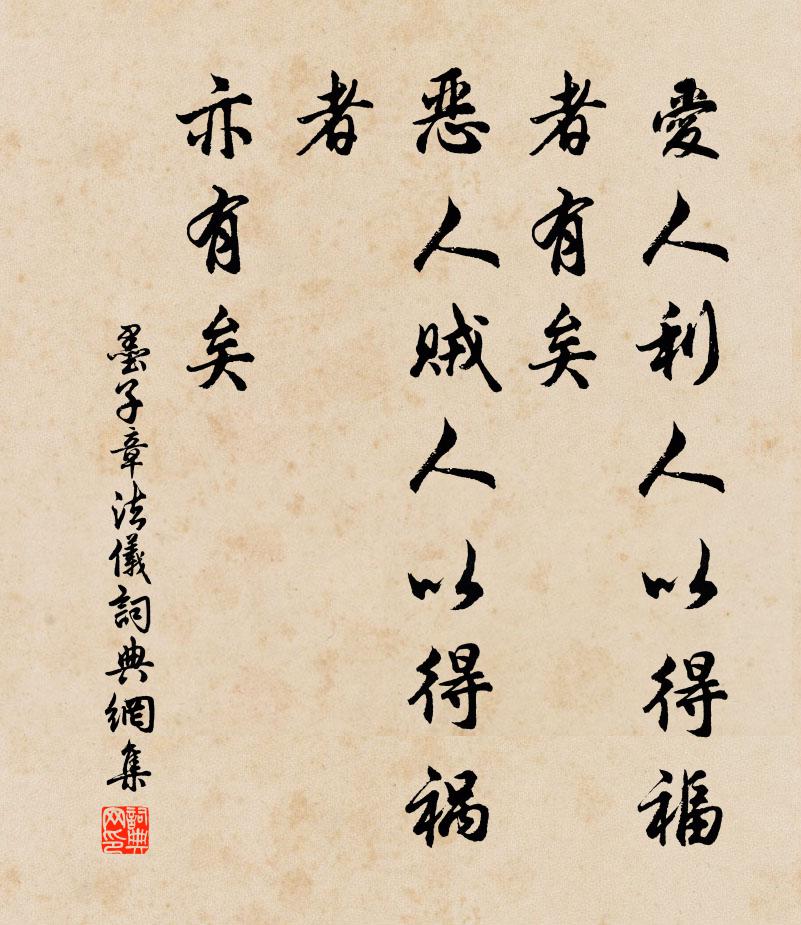 愛人利人以得福
者有矣
惡人賊人以得禍
者
亦有矣
墨子章法儀詞典網集
詞典
网印